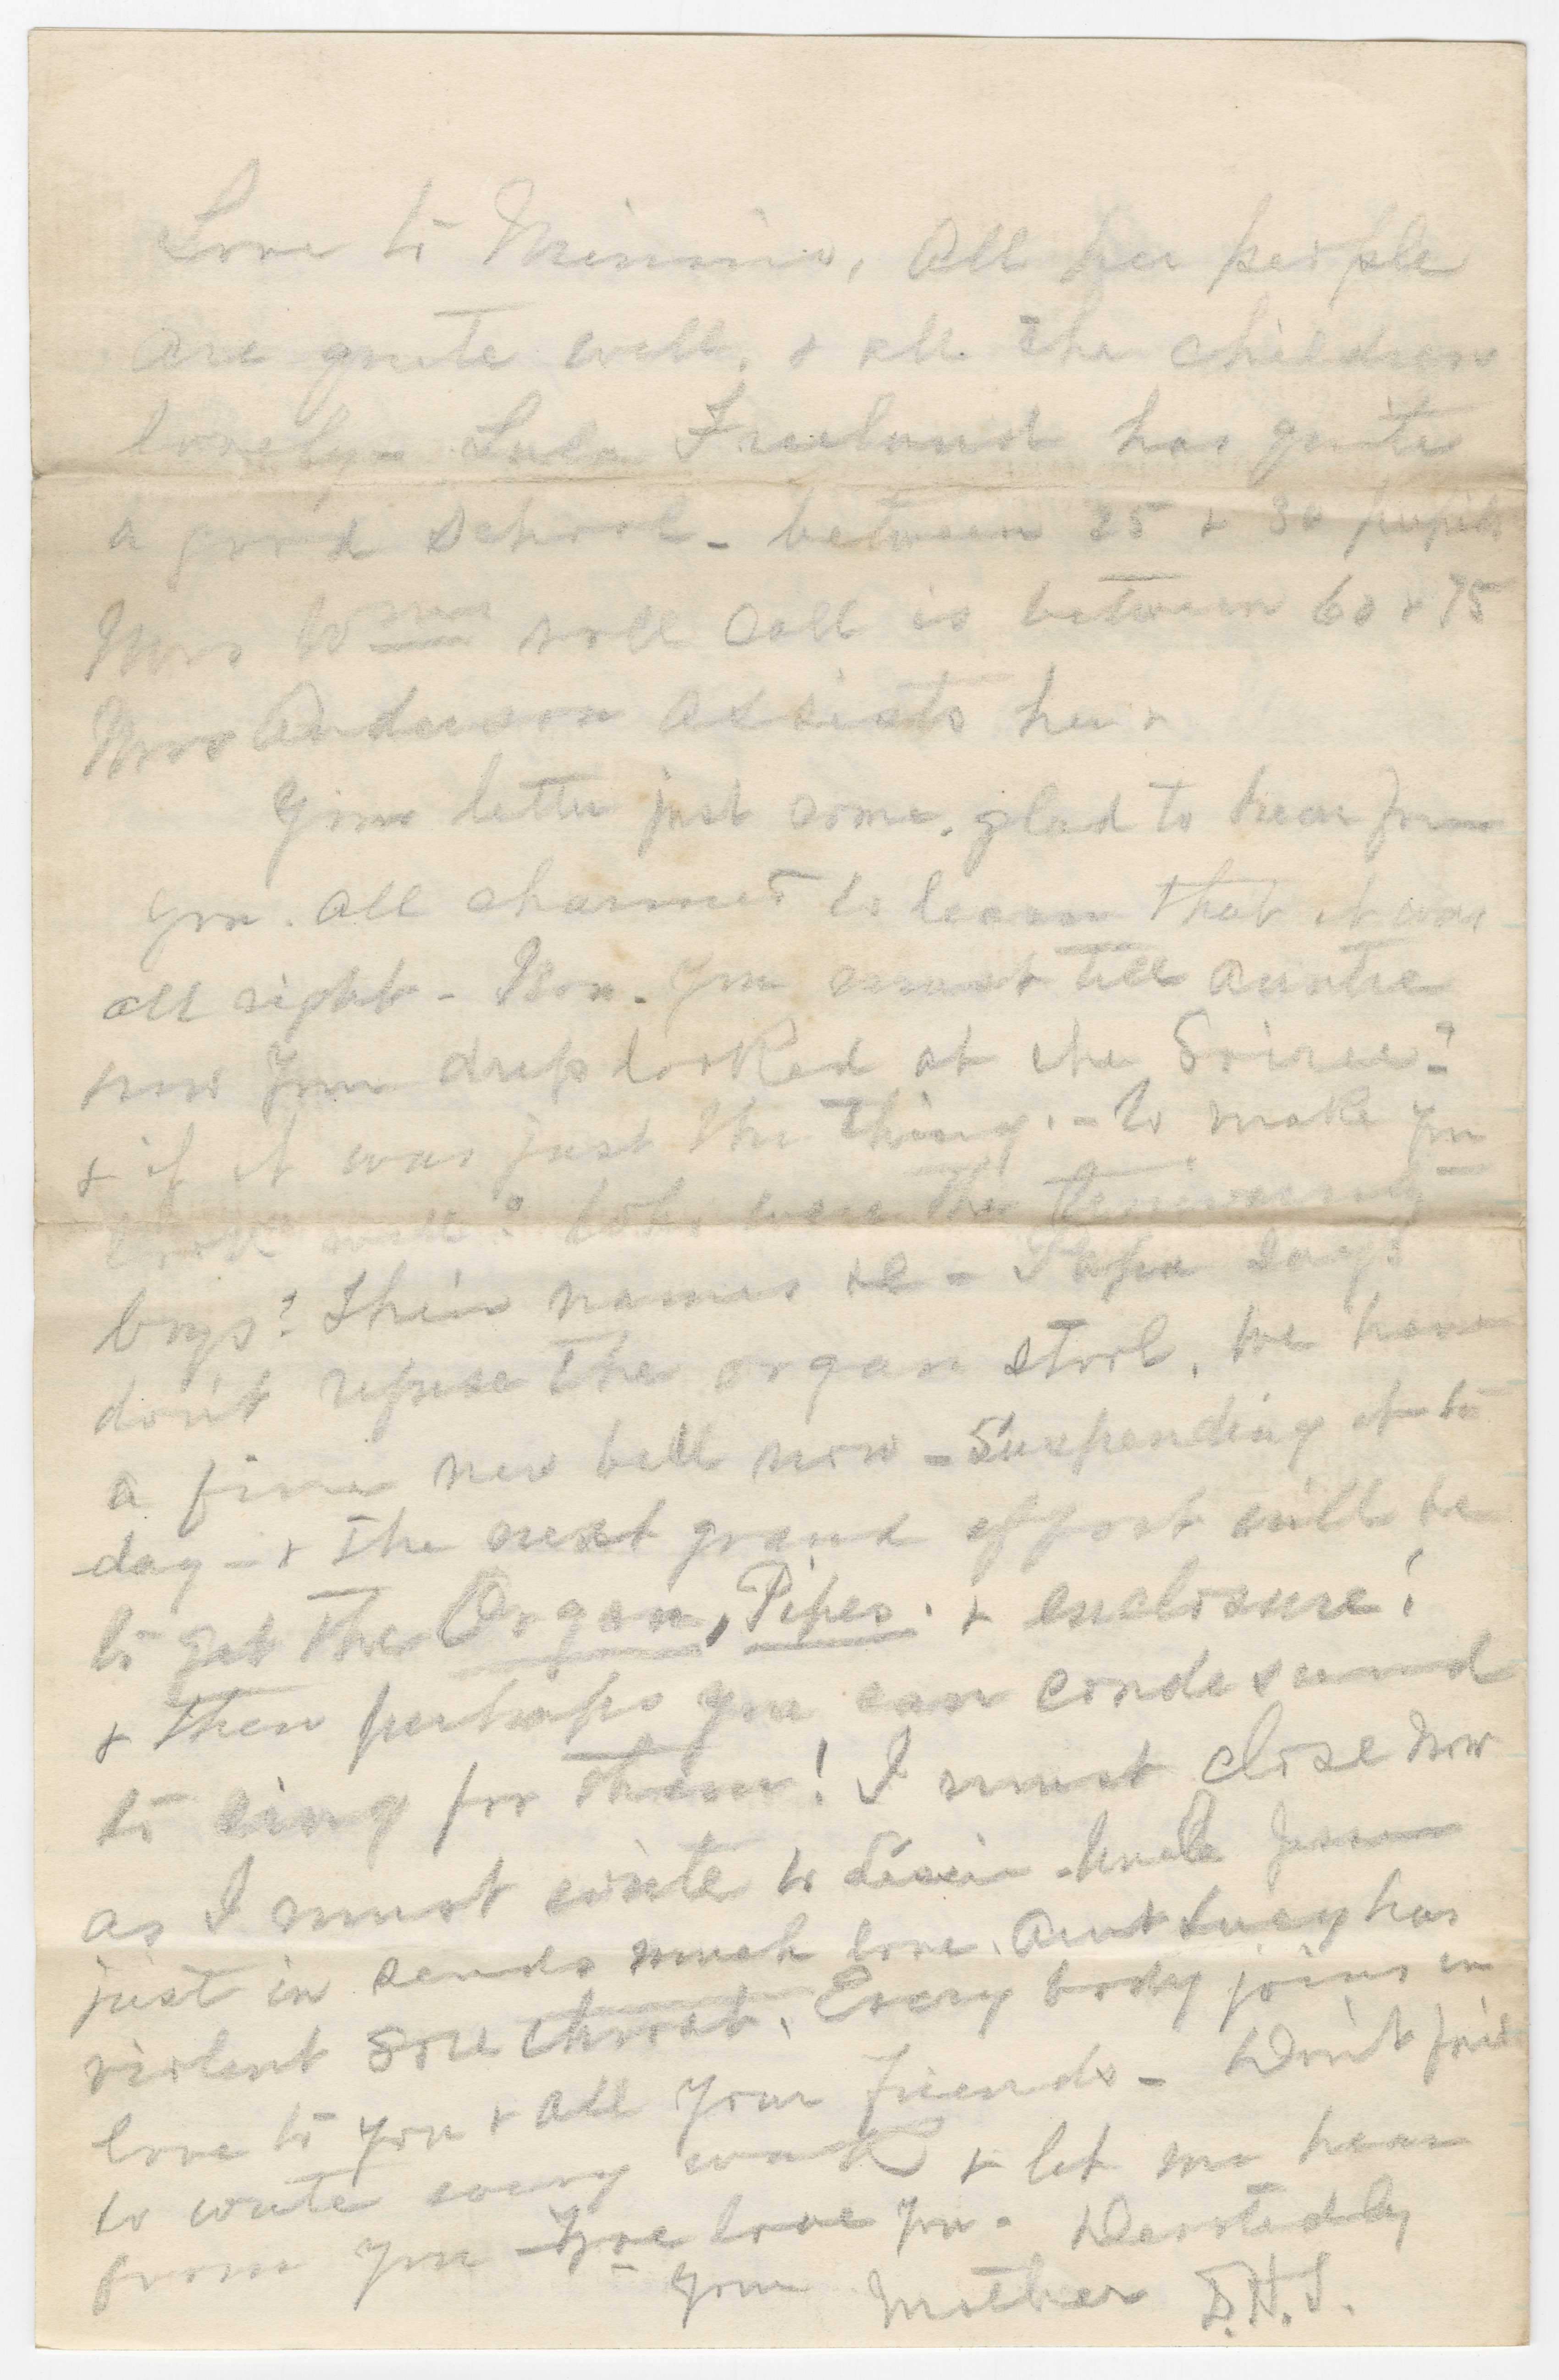 Love to Minnie, All her people
are quite well, & all the children
lovely - Lula Freeland has quite
a good school - between 25 & 30 pupils
Mrs Wms roll call is between 60 & 75
Mrs Anderson assists her.
Your letter just come. glad to hear from
you. all charmed to learn that it was
all right - Now. you must tell Auntie
how your dress looked at the Soiree?
& if it was just the thing. - to make you
look well? Who were the
boys? Their names &c - Papa says
don't refuse the organ stool. We have
a fine new bell now - Suspending it to
day - & the next grand effort will be
to get the Organ, Pipes. & enclosure!
& then perhaps you can condescend
to sing for them! I must close now
as I must write to - Uncle
just in sends much love. Aunt Lucy has
violent sore throat. Every body joins in
love to you & all your friends - Don't fail
to write every week & let me hear
from you - We love you. Devotedly
your Mother D.H.S.